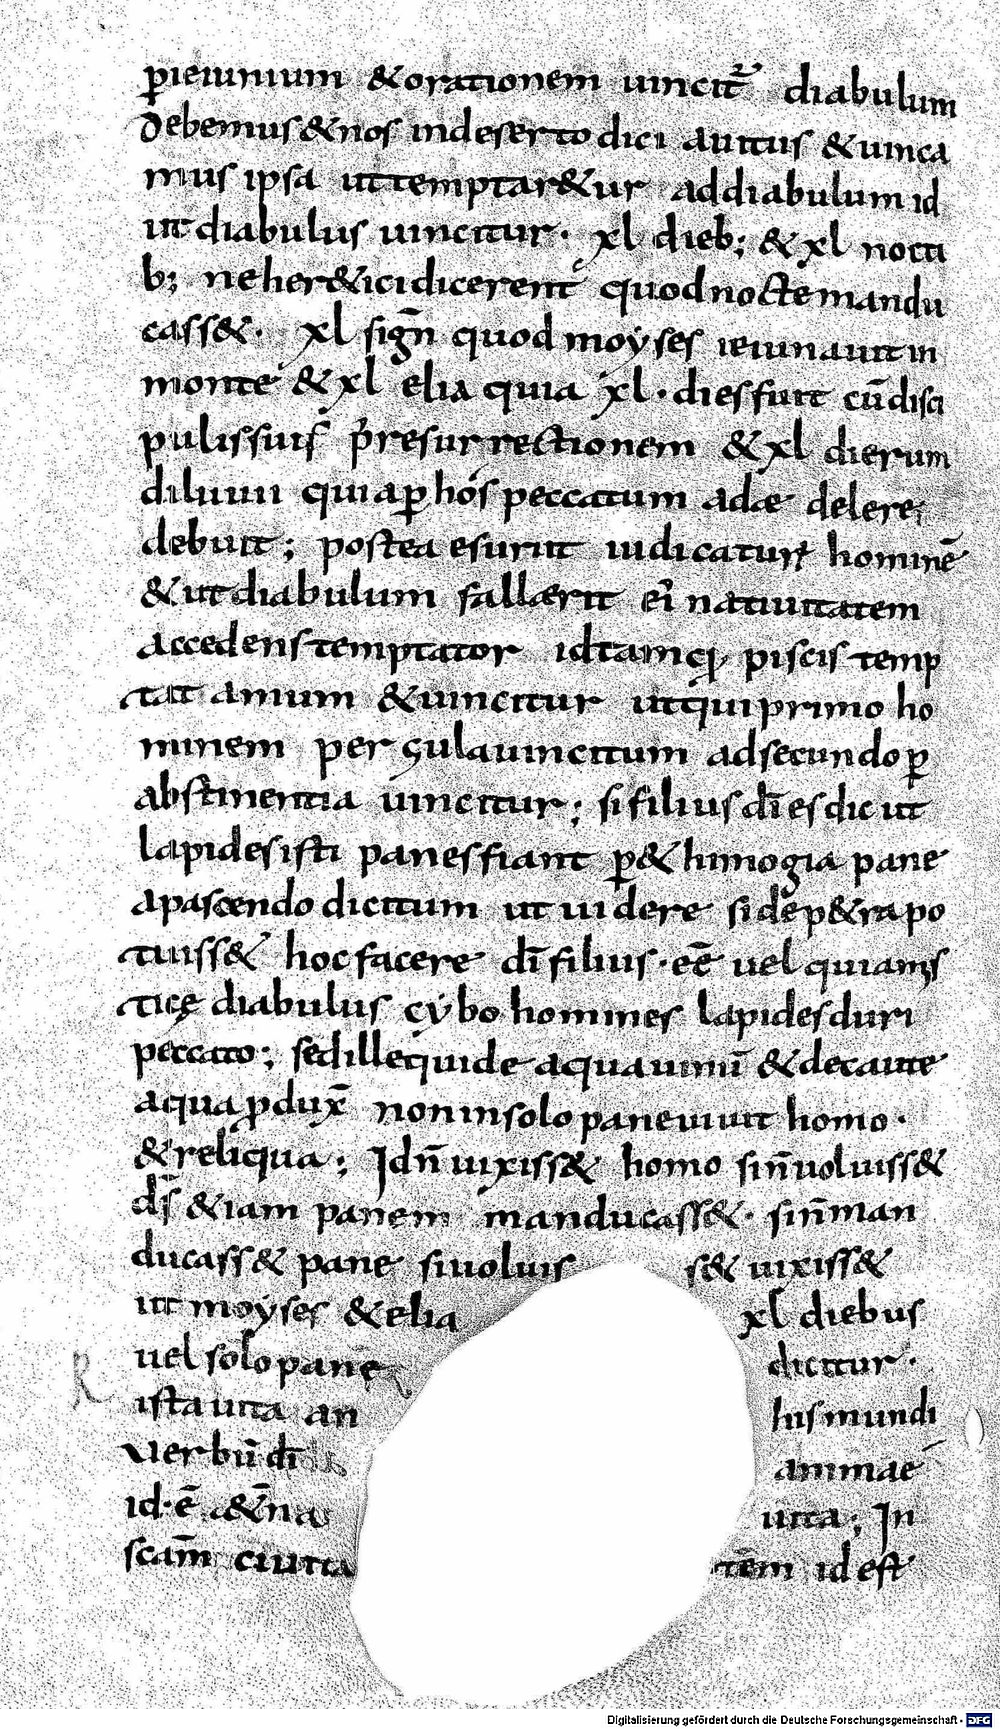 p̱ieiunium &orationem uincit᷑ diabulum
debemus &nos indeserto dici auitus &uinca
mus ipsa uttemptar&ur addiabulum id
ut diabulus uincitur· xl dieb; &xl nocti
b; neher&icidicerent quodnoctemandu
cass&· xl sign̄ quod moẏses ieiunauit in
monte &xl elia quia xl· diesfuit cū disci
pulissuis p̄resurrectionem &xl dierum
diluuii quiap̱ hos peccatum adae delere
debuit; postea esuriit iudicatur hominē
&ut diabulum fallerit ei natiuitatem
accedens temptator idtamq̱ piscis temp
tat amum &uincitur utqui primo ho
minem per gulauincitum adsecundo p̱
abstinentia uincitur; si filius dī es dic ut
lapides isti panes fiant p̱ &himogia pane
apascendo dictitum ut uidere si dēp&rapo
tuiss& hoc facere dī filius· eē uel quia
ticę diabulus cẏbo homines lapides duri
peccato; sedillequide aquauinū &decaute
aqua ꝓdux̄ non insolo paneuiuit homo·
&reliqua; Idn̄ uixiss& homo sin̄uoluiss&
ds̄ &iam panem manducass&· sin̄man
ducass& pane siuoluis s& uixiss&
ut moẏses &elia xl diebus
uel solo pane dicitur·
ista uita an huismundi
uerbū dī animae
id·ē &n̄a uita; In
scam̄ ciuita tēm id est
Digitalisierung gefördert durch die Deutsche Forschungsgemeinschaft - DFG